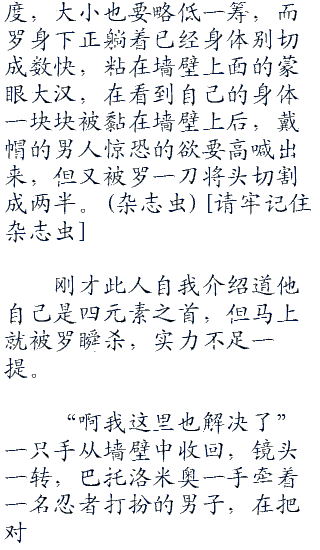 度，大小也要略低一筹，而
罗身下正躺着已经身体别切
成数快，粘在墙壁上面的蒙
眼大汉，在看到自己的身体
一块块被黏在墙壁上后，戴
帽的男人惊恐的欲要高喊出
来，但又被罗一刀将头切割
成两半。(杂志虫)[请牢记住
杂志虫]
刚才此人自我介绍道他
自己是四元素之首，但马上
就被罗瞬杀，实力不足一
提。
“啊我这里也解决了”
一只手从墙壁中收回，镜头
一转，巴托洛米奥一手牵着
一名忍者打扮的男子，在把
对